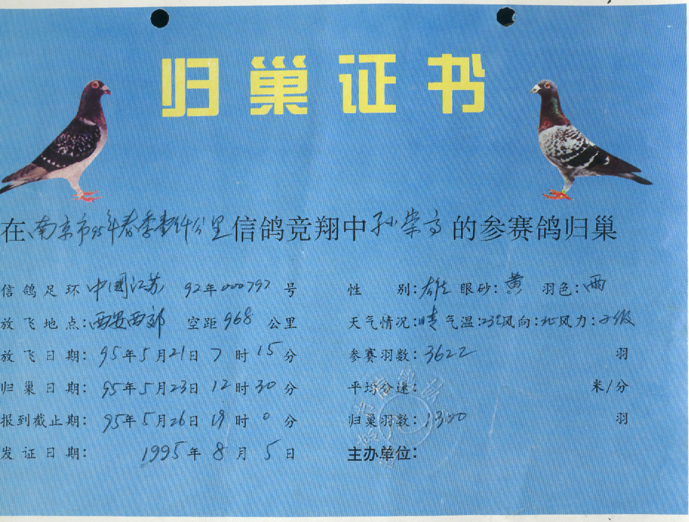 归巢证书
在南京市95年春季千公里信鸽竞翔中孙荣方的参赛鸽归巢
信鸽足环中国江苏 92年000797号
性 别:雄 眼砂:黄 羽色:雨
放飞地点:西安西郊 空距968公里
天气情况:晴 气温:23℃ 风向:北 风力:2级
放飞日期:95年5月21日7时15分
参赛羽数:3622 羽
归巢日期:95年5月23日12时30分
平均分速: 米/分
报到截止期:95年5月26日19时0分
归巢羽数:1300 羽
发证日期: 1995年8月5日
主办单位: